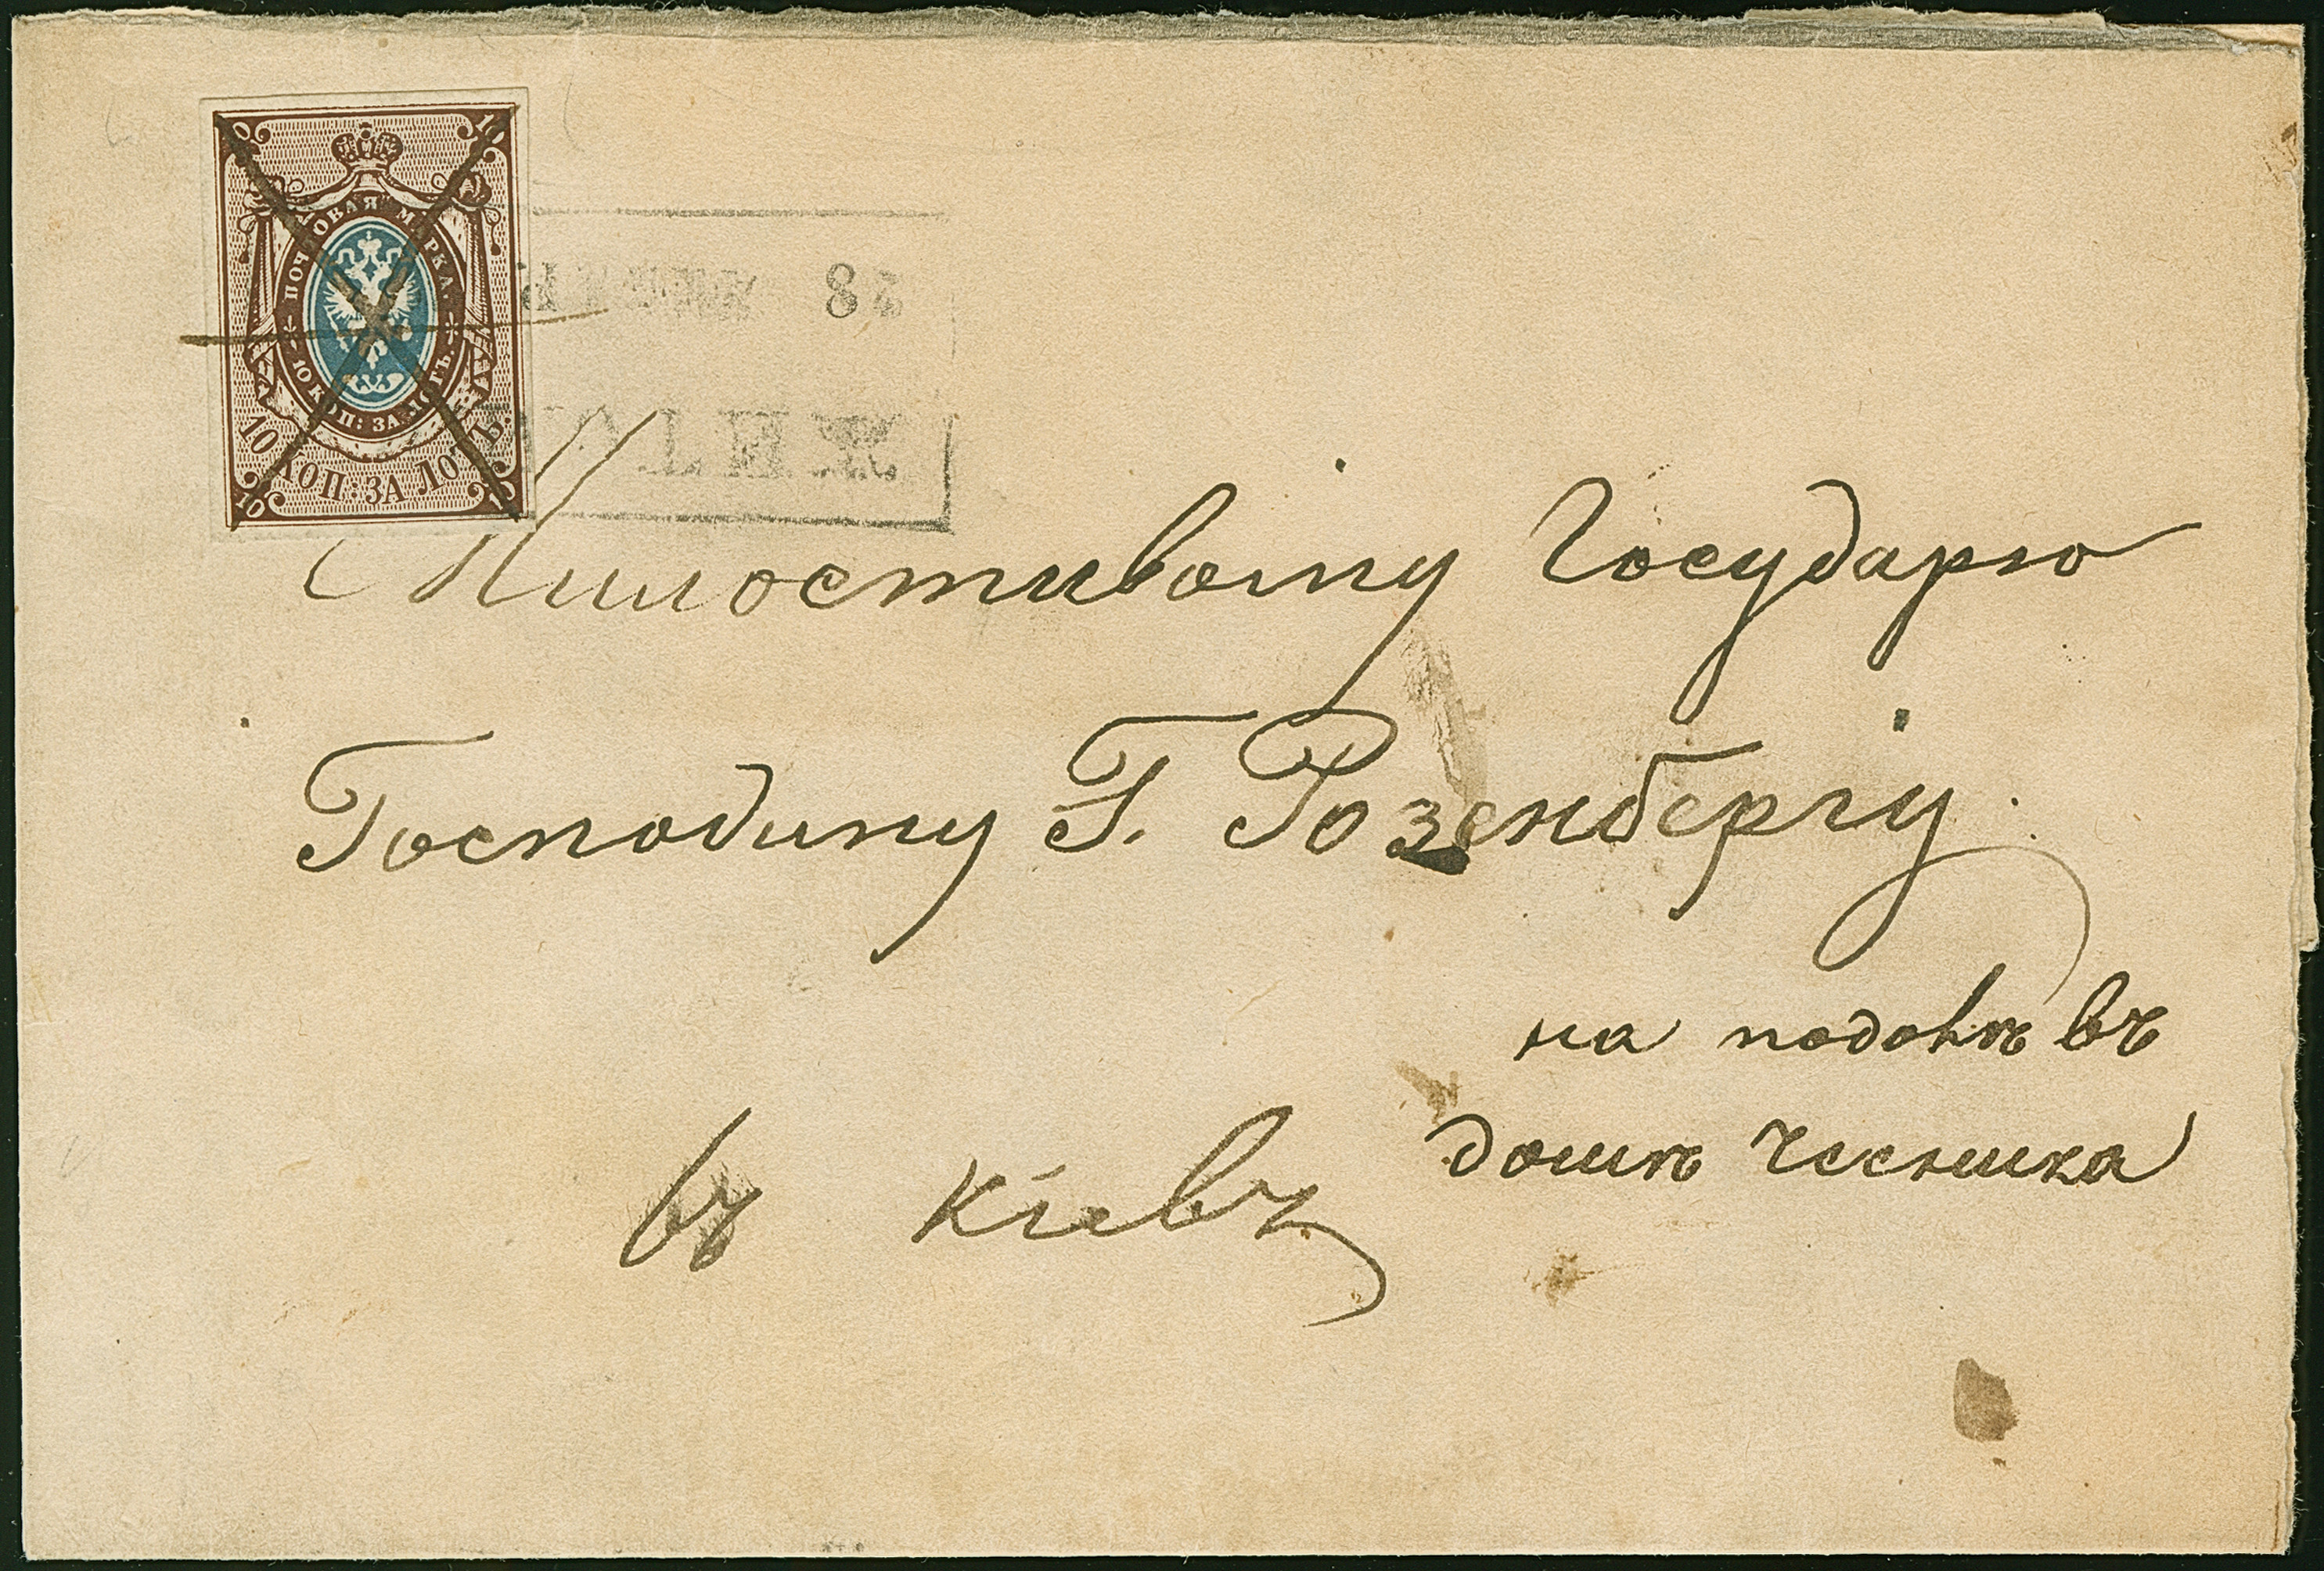 10 10
ПОЧТОВАЯ МАРКА.
10 КОП: ЗА ЛОТЪ.
10 КОП: ЗА ЛОТЪ.
10 10
28
Милостивому Государю
Господину Г. Розенбергіу
на подолѣ въ
домѣ Чесника
въ Кіевъ